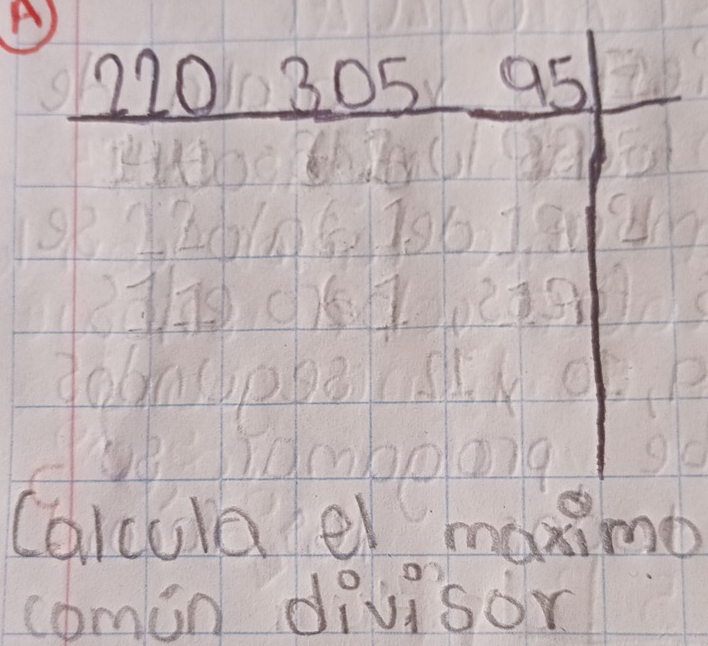 A
220 305 95
Calcula el maximo
común divisor